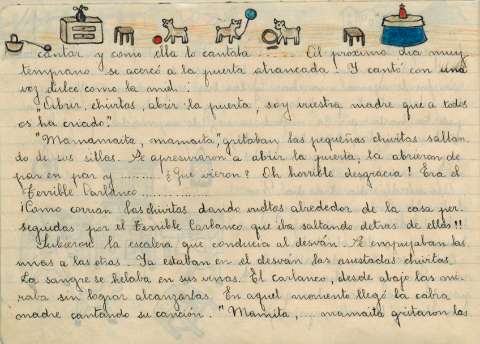 cantar y como ella lo cantaba ........ Al próximo dia muy
temprano se acercó a la puerta atrancada. Y cantó con una
voz dulce como la miel:
"Abrir, chivitas, abrir la puerta, soy vuestra madre que a todos
os ha criado."
"Mamamaita, mamaita," gritaban las pequeñas chivitas saltan
do de sus sillas. Se apresuraron a abrir la puerta, la abrieron de
par en par y ......... ¿Que vieron? Oh horrible desgracia! Era el
Terrible Carlanco ..............
¡Como corrian las chivitas dando vueltas alrededor de la casa per-
seguidas por el Terrible Carlanco que iba saltando detras de ellas!!
Subieron la escalera que conducia al desván. Se empujaban las
unas a las otras. Ya estaban en el desván las asustadas chivitas.
La sangre se helaba en sus venas. El carlanco, desde abajo las mi-
raba sin lograr alcanzarlas. En aquel momento llegó la cabra
madre cantando su canción. "Mamita, .... mamaita gritaron las